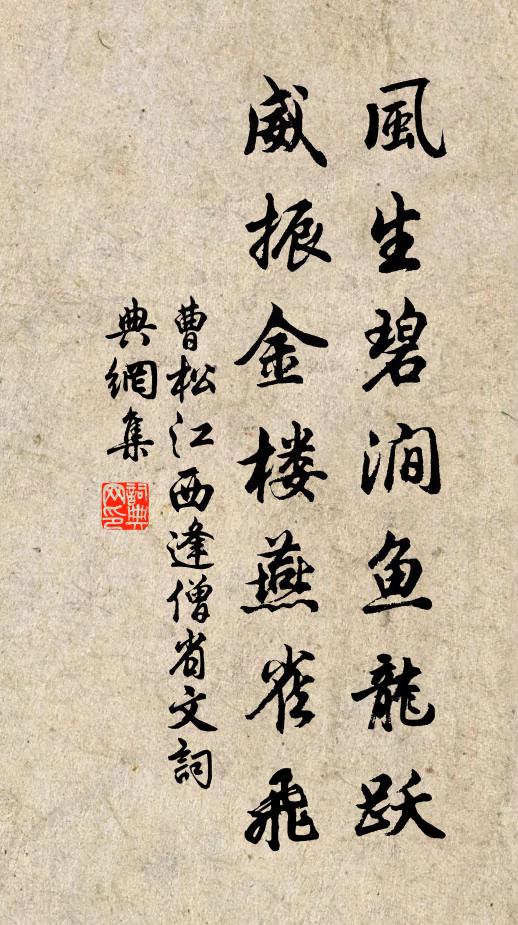 風生碧涧鱼龍跃
威振金楼燕雀飛
曹松江西逢僧省文詞
典網集
詞典
网印